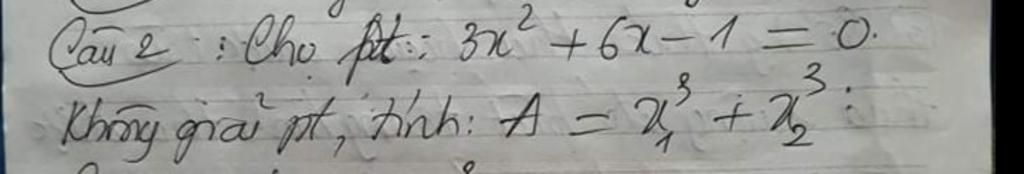 Câu 2 : Cho pt: 3x² + 6x - 1 = 0.
Không giải pt, tính: A = x₁³ + x₂³.